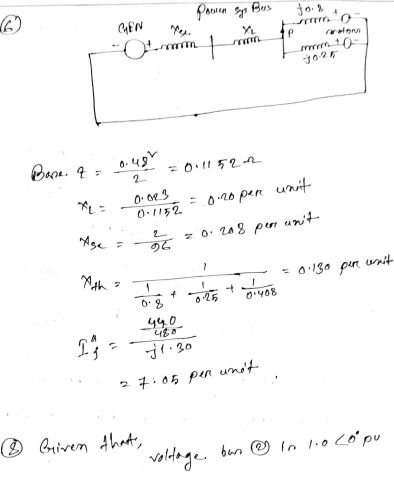 6
Power sys Bus
GEN Xse XL j0.8
- + + -
P motors
+ -
j0.25
Base Z = 0.48² / 2 = 0.1152 Ω
XL = 0.023 / 0.1152 = 0.20 per unit
Xse = 2 / 96 = 0.208 per unit
Xth = 1 / (1/0.8 + 1/0.25 + 1/0.408) = 0.130 per unit
I"f = (440/480) / j1.30
= 7.05 per unit.
8 Given that, voltage bus 2 In 1.0 <0° pu